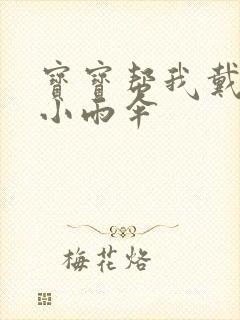 寶寶幫我戴
小雨伞
梅花烙